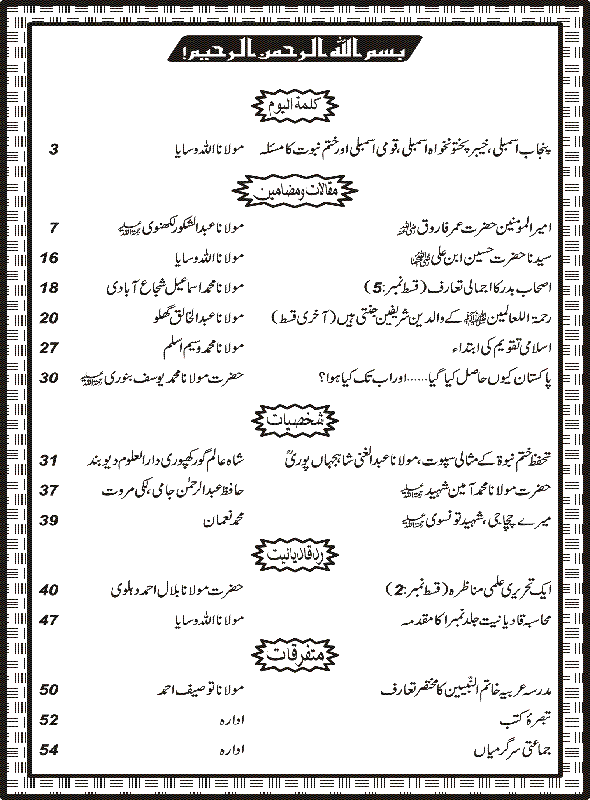 بسم اللہ الرحمن الرحیم!
کلمۃ الیوم
پنجاب اسمبلی، خیبر پختونخواہ اسمبلی، قومی اسمبلی اور ختم نبوت کا مسئلہ مولانا اللہ وسایا 3
مقالات و مضامین
امیر المؤمنین حضرت عمر فاروق رضی اللہ عنہ مولانا عبدالشکور لکھنوی رحمۃ اللہ علیہ 7
سیدنا حضرت حسین ابن علی رضی اللہ عنہما مولانا اللہ وسایا 16
اصحاب بدر کا اجمالی تعارف (قسط نمبر: 5) مولانا محمد اسماعیل شجاع آبادی 18
رحمۃ اللعالمین ﷺ کے والدین شریفین جنتی ہیں (آخری قسط) مولانا عبدالخالق گھلو 20
اسلامی تقویم کی ابتداء مولانا محمد وسیم اسلم 27
پاکستان کیوں حاصل کیا گیا......اور اب تک کیا ہوا؟ حضرت مولانا محمد یوسف بنوری رحمۃ اللہ علیہ 30
شخصیات
تحفظ ختم نبوۃ کے مثالی سپوت، مولانا عبدالغنی شاہجہاں پوریؒ شاہ عالم گورکھپوری دارالعلوم دیوبند 31
حضرت مولانا محمد امین شہید رحمۃ اللہ علیہ حافظ عبدالرحمٰن جامی، لکی مروت 37
میرے چچا جی، شہید تونسوی رحمۃ اللہ علیہ محمد نعمان 39
رد قادیانیت
ایک تحریری علمی مناظرہ (قسط نمبر: 2) حضرت مولانا بلال احمد دہلوی 40
محاسبہ قادیانیت جلد نمبر 1 کا مقدمہ مولانا اللہ وسایا 47
متفرقات
مدرسہ عربیہ خاتم النبیین کا مختصر تعارف مولانا توصیف احمد 50
تبصرۂ کتب ادارہ 52
جماعتی سرگرمیاں ادارہ 54